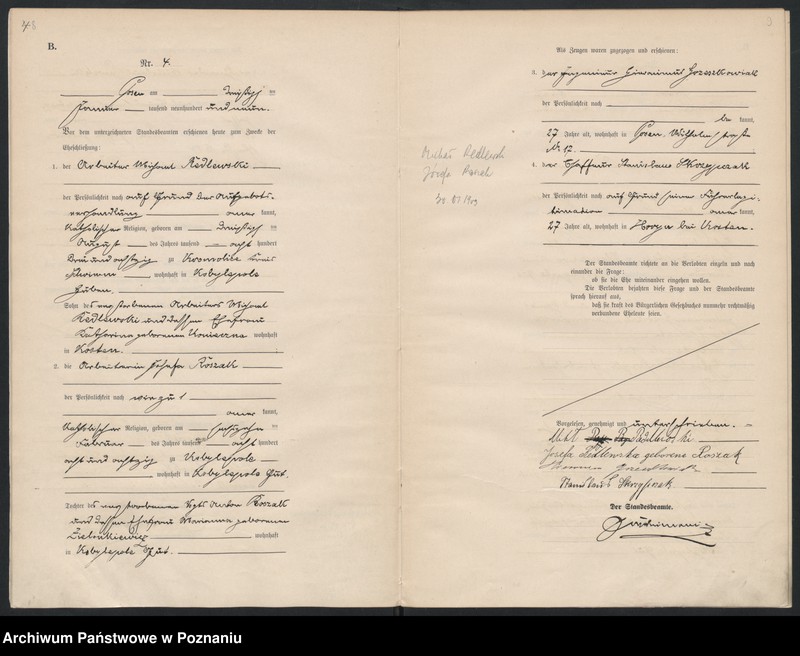 48
B.
Nr. 4.
Posen am dreißigsten
Januar tausend neunhundert und neun.
Vor dem unterzeichneten Standesbeamten erschienen heute zum Zwecke der
Eheschließung:
1. der Arbeiter Michael Redlewski
der Persönlichkeit nach auf Grund der Aufgebots-
verhandlung kannt,
katholischer Religion, geboren am dreißigsten
August des Jahres tausend acht hundert
drei und achtzig zu
wohnhaft in Kobylepole
Sohn des verstorbenen Arbeiters Michael
Redlewski und dessen Ehefrau
Katharina geborenen wohnhaft
in Kosten.
2. die Arbeiterin Josefa Roszak
der Persönlichkeit nach wie zu 1
kannt,
katholischer Religion, geboren am sechzehnten
Februar des Jahres tausend acht hundert
acht und achtzig zu Kobylepole
wohnhaft in Kobylepole Gut.
Tochter des verstorbenen Vogts Anton Roszak
und dessen Ehefrau Marianna geborenen
Zielonkiewicz wohnhaft
in Kobylepole Gut.
3
Als Zeugen waren zugezogen und erschienen:
3. der Ingenieur Hieronimus
der Persönlichkeit nach
be kannt,
27 Jahre alt, wohnhaft in Posen,
Nr 12.
4. der Chauffeur Stanislaus Skrzypczak
der Persönlichkeit nach auf Grund seiner
kannt,
27 Jahre alt, wohnhaft in bei Kosten.
Michał Redlewski
Józefa Roszak
30 01 1909
Der Standesbeamte richtete an die Verlobten einzeln und nach
einander die Frage:
ob sie die Ehe miteinander eingehen wollen.
Die Verlobten bejahten diese Frage und der Standesbeamte
sprach hierauf aus,
daß sie kraft des Bürgerlichen Gesetzbuches nunmehr rechtmäßig
verbundene Eheleute seien.
Vorgelesen, genehmigt und unterschrieben.
Redlewski
Josefa Redlewska geborene Roszak
Der Standesbeamte.
Archiwum Państwowe w Poznaniu